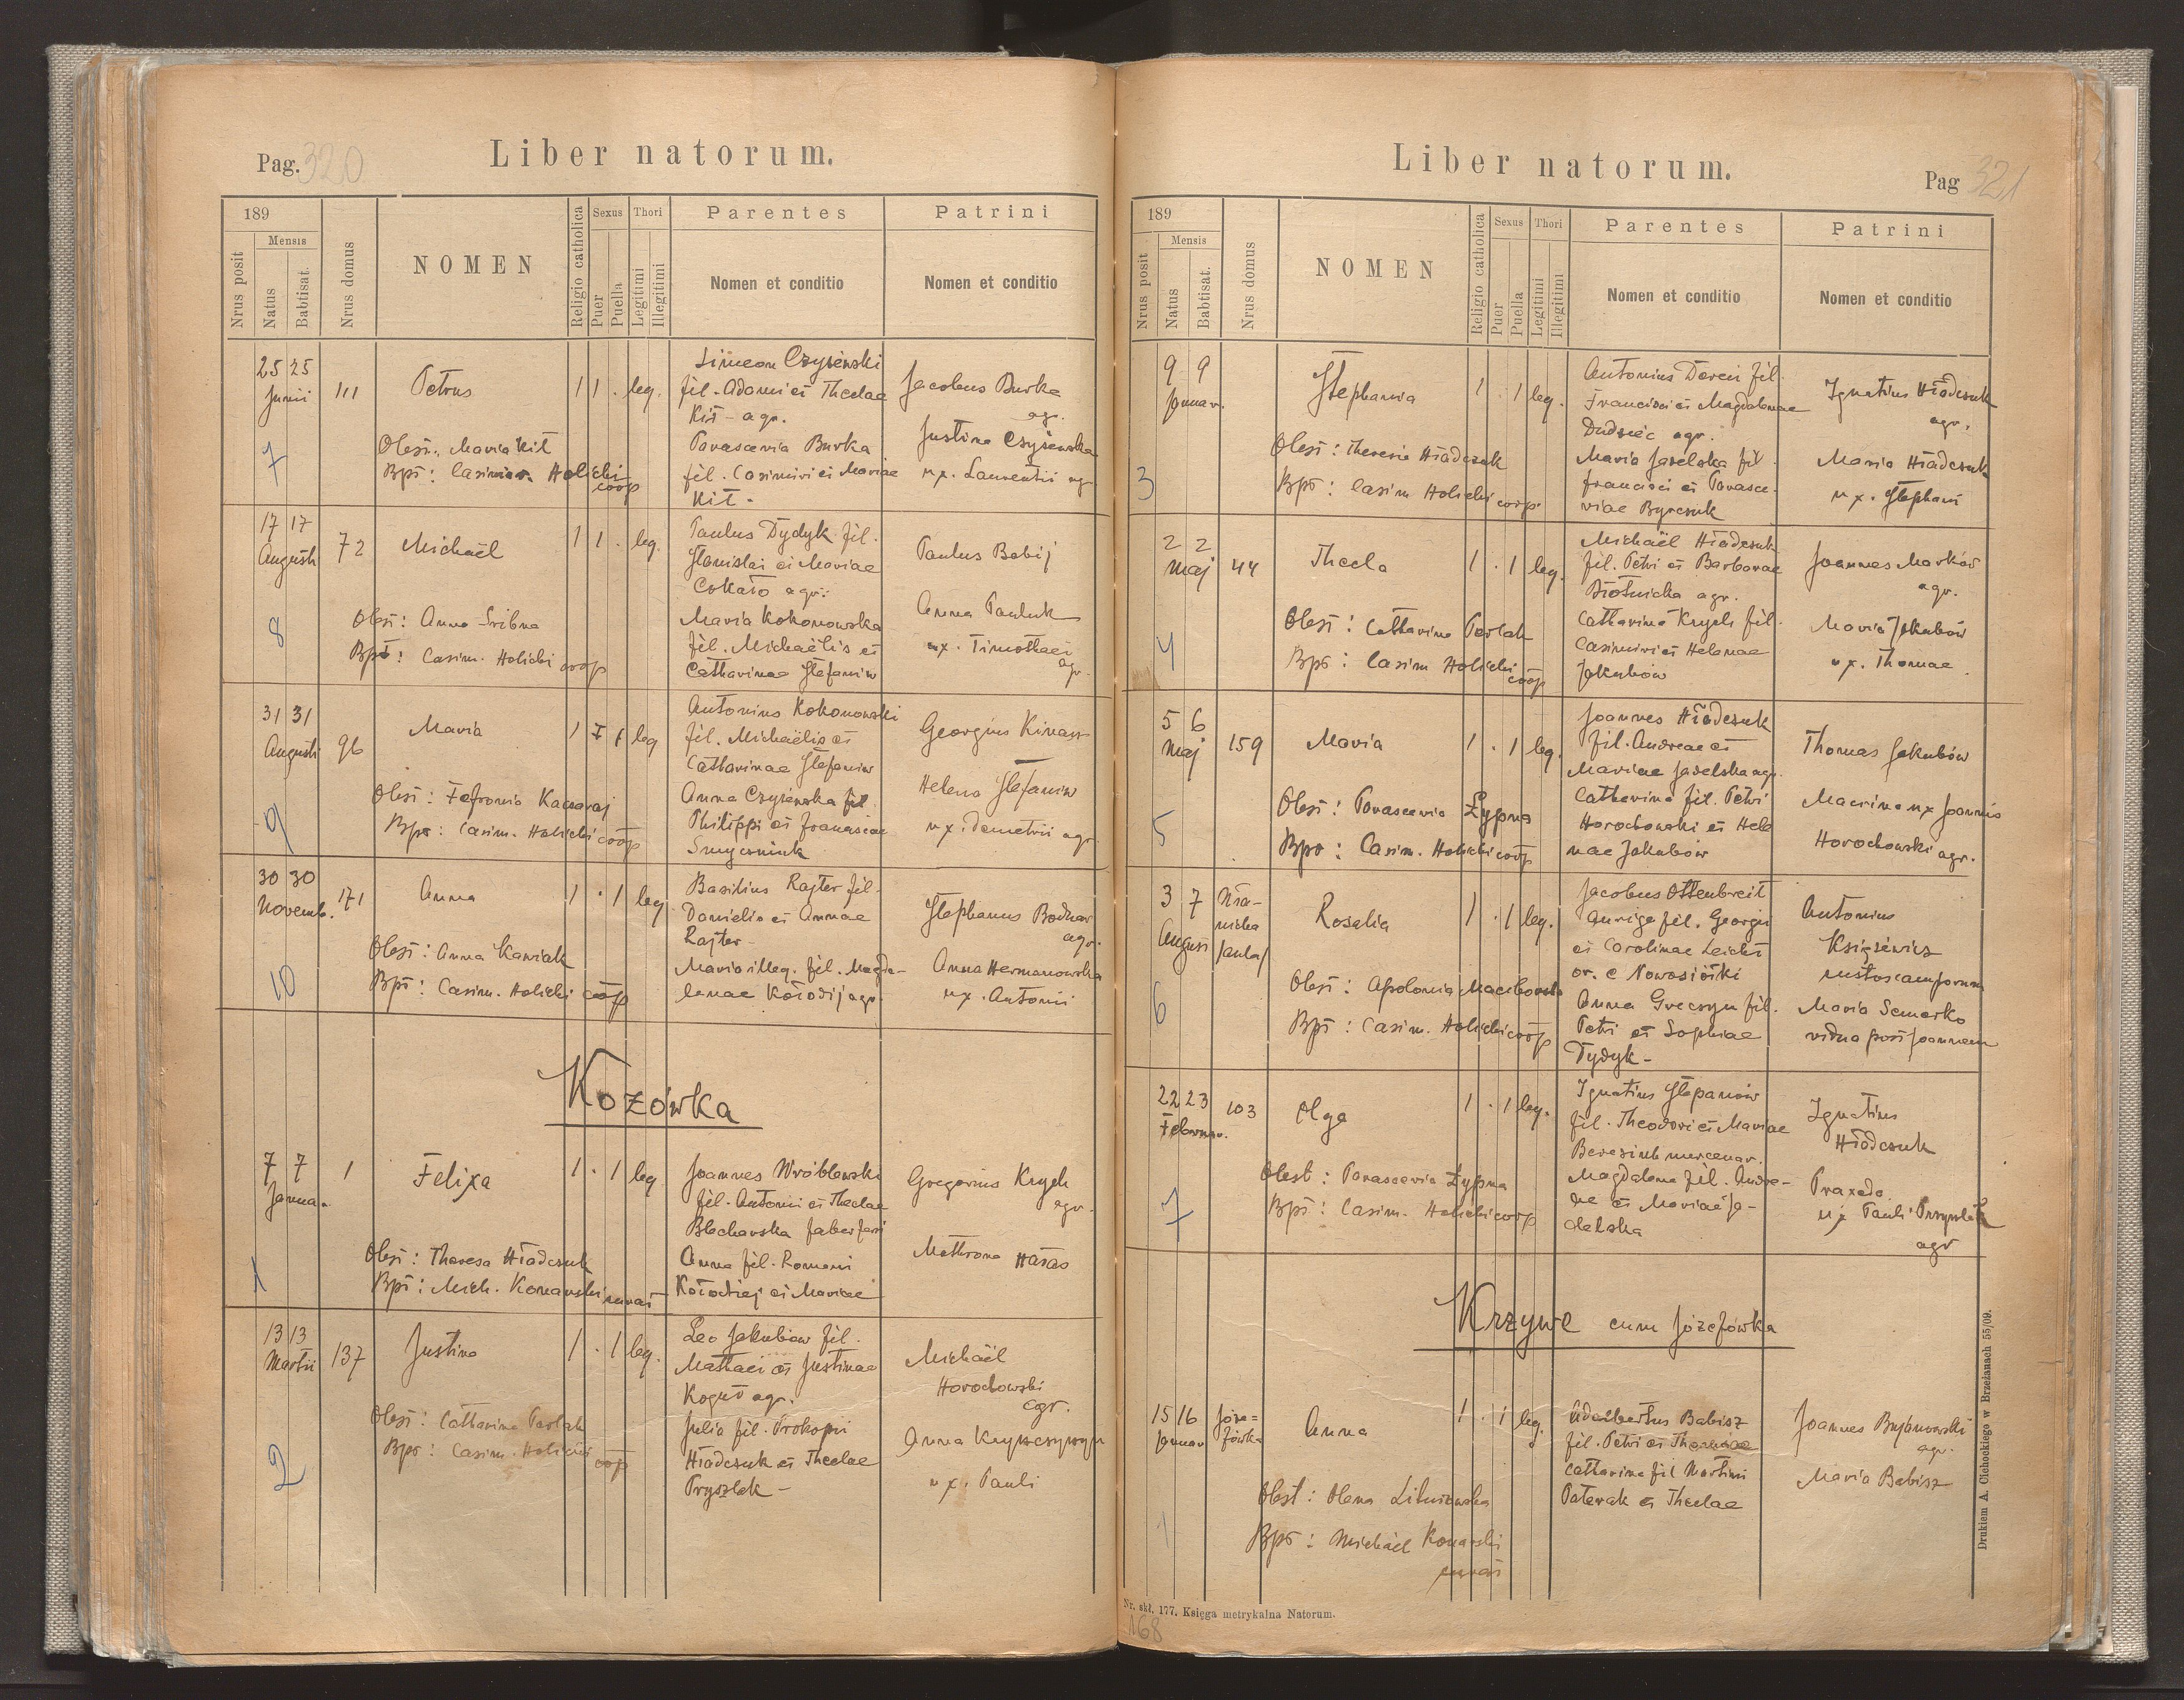 Pag. 320
Liber natorum.
189
Nrus posit
Mensis
Natus
Babtisat.
Nrus domus
NOMEN
Religio catholica
Sexus
Puer
Puella
Thori
Legitimi
Illegitimi
Parentes
Nomen et conditio
Patrini
Nomen et conditio
25 25
Junii
111
Petrus
1 1 . leg.
Simeon Czyżewski
fil. Adami et Theclae
Kit - agr.
Parascevia Burka
fil. Casimiri et Mariae
Kit -
Jacobus Burka
agr.
Justina Czyżewska
ux. Laurentii agr
7
Obest.: Maria Kit
Bpt: Casimirus Holicki
coop
17 17
Augusti
72
Michaël
1 1 . leg.
Paulus Dydyk fil.
Stanislai et Mariae
Cokało agr.
Maria Kokonowska
fil. Michaëlis et
Catharinae Stefaniw
Paulus Babij
Anna Pauluk
ux. Timothaei
agr.
8
Obst: Anna Sribna
Bpt: Casim. Holicki coop
31 31
Augusti
96
Maria
1 1 leg
Antonius Kokonowski
fil. Michaëlis et
Catharinae Stefaniw
Anna Czyżewska fil
Philippi et Franciscae
Smyczniuk
Georgius Kinasz
Helena Stefaniw
ux. Demetrii agr
9
Obst: Fefronia
Bpt: Casim. Holicki coop
30 30
Novemb.
171
Anna
1 . 1 leg
Basilius Rajter fil.
Danielis et Annae
Rajter -
Maria illeg. fil. Magda-
lenae Kołodij agr.
Stephanus Bodnar
agr.
Anna Hermanowska
ux. Antonii
10
Obst: Anna Kawiak
Bpt: Casim. Holicki coop
Kozówka
7 7
Janua.
1
Felixa
1 . 1 leg
Joannes Wróblewski
fil. Antonii et Theclae
Blecharska faber
Anna fil. Romani
Kołodziej et Mariae
Gregorius Krych
agr.
Mathrona Hałas
1
Obst: Theresa Hładczuk
Bpt: Mich. Konarski
13 13
Martii
137
Justina
1 . 1 leg.
Leo Jakubiow fil.
Mathaei et Justinae
Kogut agr.
Julia fil. Prokopii
Hładczuk et Theclae
Pryszlak -
Michaël
Horochowski
agr.
Anna
ux. Pauli
2
Obst: Catharina Parlak
Bpt: Casim. Holicki coop
Liber natorum.
Pag 321
189
Nrus posit
Mensis
Natus
Babtisat.
Nrus domus
NOMEN
Religio catholica
Sexus
Puer
Puella
Thori
Legitimi
Illegitimi
Parentes
Nomen et conditio
Patrini
Nomen et conditio
9 9
Januar.
Stephania
1 . 1 leg.
Antonius Dereń fil.
Francisci et Magdalenae
Dudziec agr.
Maria Jaselska fil
Francisci et Parasce-
viae Byrczuk
Ignatius Hładczuk
agr.
Maria Hładczuk
ux. Stephani
3
Obst: Theresia Hładczuk
Bpt: Casim. Holicki coop.
2 2
Maj
44
Thecla
1 . 1 leg.
Michaël Hładczuk
fil. Petri et Barbarae
Błotnicka agr.
Catharina Krych fil.
Casimiri et Helenae
Jakubów
Joannes Marków
agr.
Maria Jakubów
ux. Thomae
4
Obst: Catharina Parlak
Bpt: Casim Holicki
coop
5 6
Maj
159
Maria
1 . 1 leg.
Joannes Hładczuk
fil. Andreae et
Mariae Jaselska agr.
Catharina fil. Petri
Horochowski et Hele
nae Jakubów
Thomas Jakubów
Macrina ux Joannis
Horochowski agr.
5
Obst: Parascevia Żypna
Bpt: Casim. Holicki coop
3 7
Augusti
Rosalia
1 . 1 leg.
Jacobus Ottenbreit
auriga fil. Georgii
et Carolinae Leicht
or. e Nowosiółki
Anna Greczyn fil.
Petri et Sophiae
Dydyk -
Antonius
Księżewicz
custos camporum
Maria Semerko
vidua post Joannem
6
Obst: Apolonia
Bpt: Casim. Holicki coop
22 23
Februar.
103
Olga
1 . 1 leg.
Ignatius Stepanów
fil. Theodori et Mariae
Bereziuk mercenar.
Magdalena fil. Andre-
ae et Mariae Ja-
delska
Ignatius
Hładczuk
Praxeda
ux Pauli Pryszlak
agr
7
Obest: Parascevia Żypna
Bpt: Casim. Holicki coop
Krzywe cum Józefówka
15 16
Januar
Józe=
fówka
Anna
1 . 1 leg.
Adalbertus Babisz
fil. Petri et
Catharina fil Martini
Paterak et Theclae
Joannes Bryanowski
agr.
Maria Babisz
1
Obst: Olena
Bpt: Michaël Konarski
Drukiem A. Cichockiego w Brzeżanach 55/09.
Nr. skł. 177. Księga metrykalna Natorum.
168